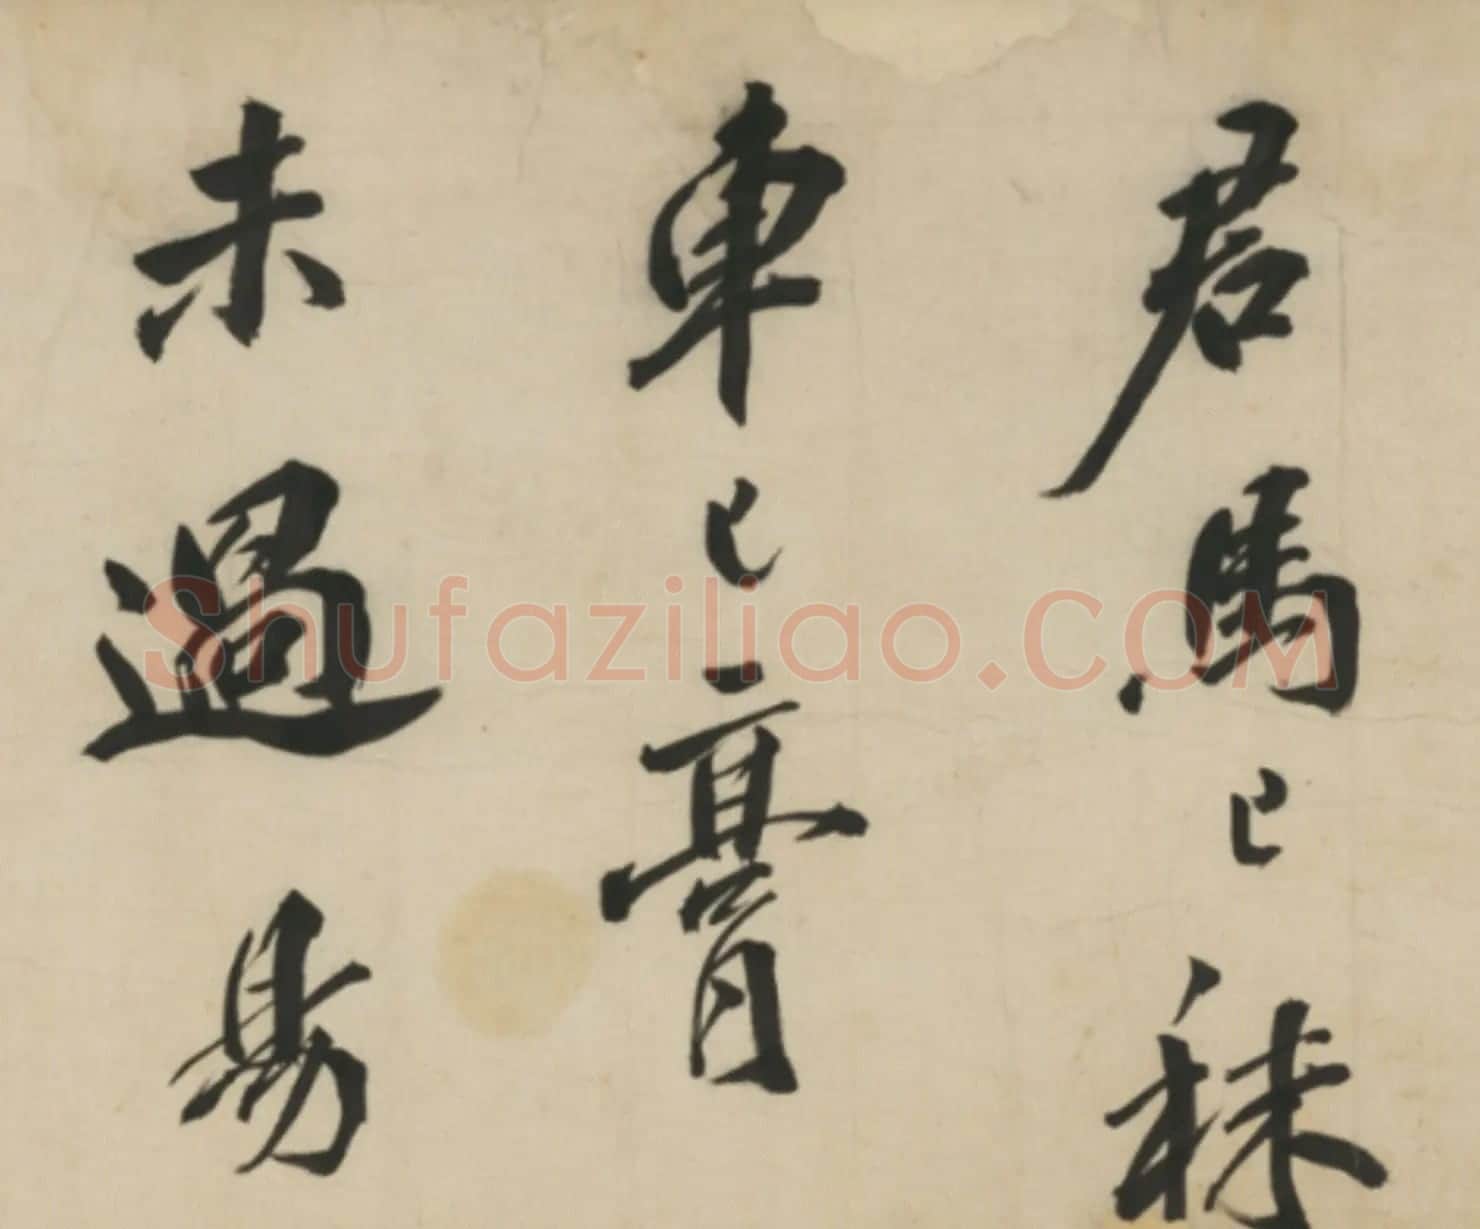 君馬已秣
車已膏
未過易
Shufaziliao.COM